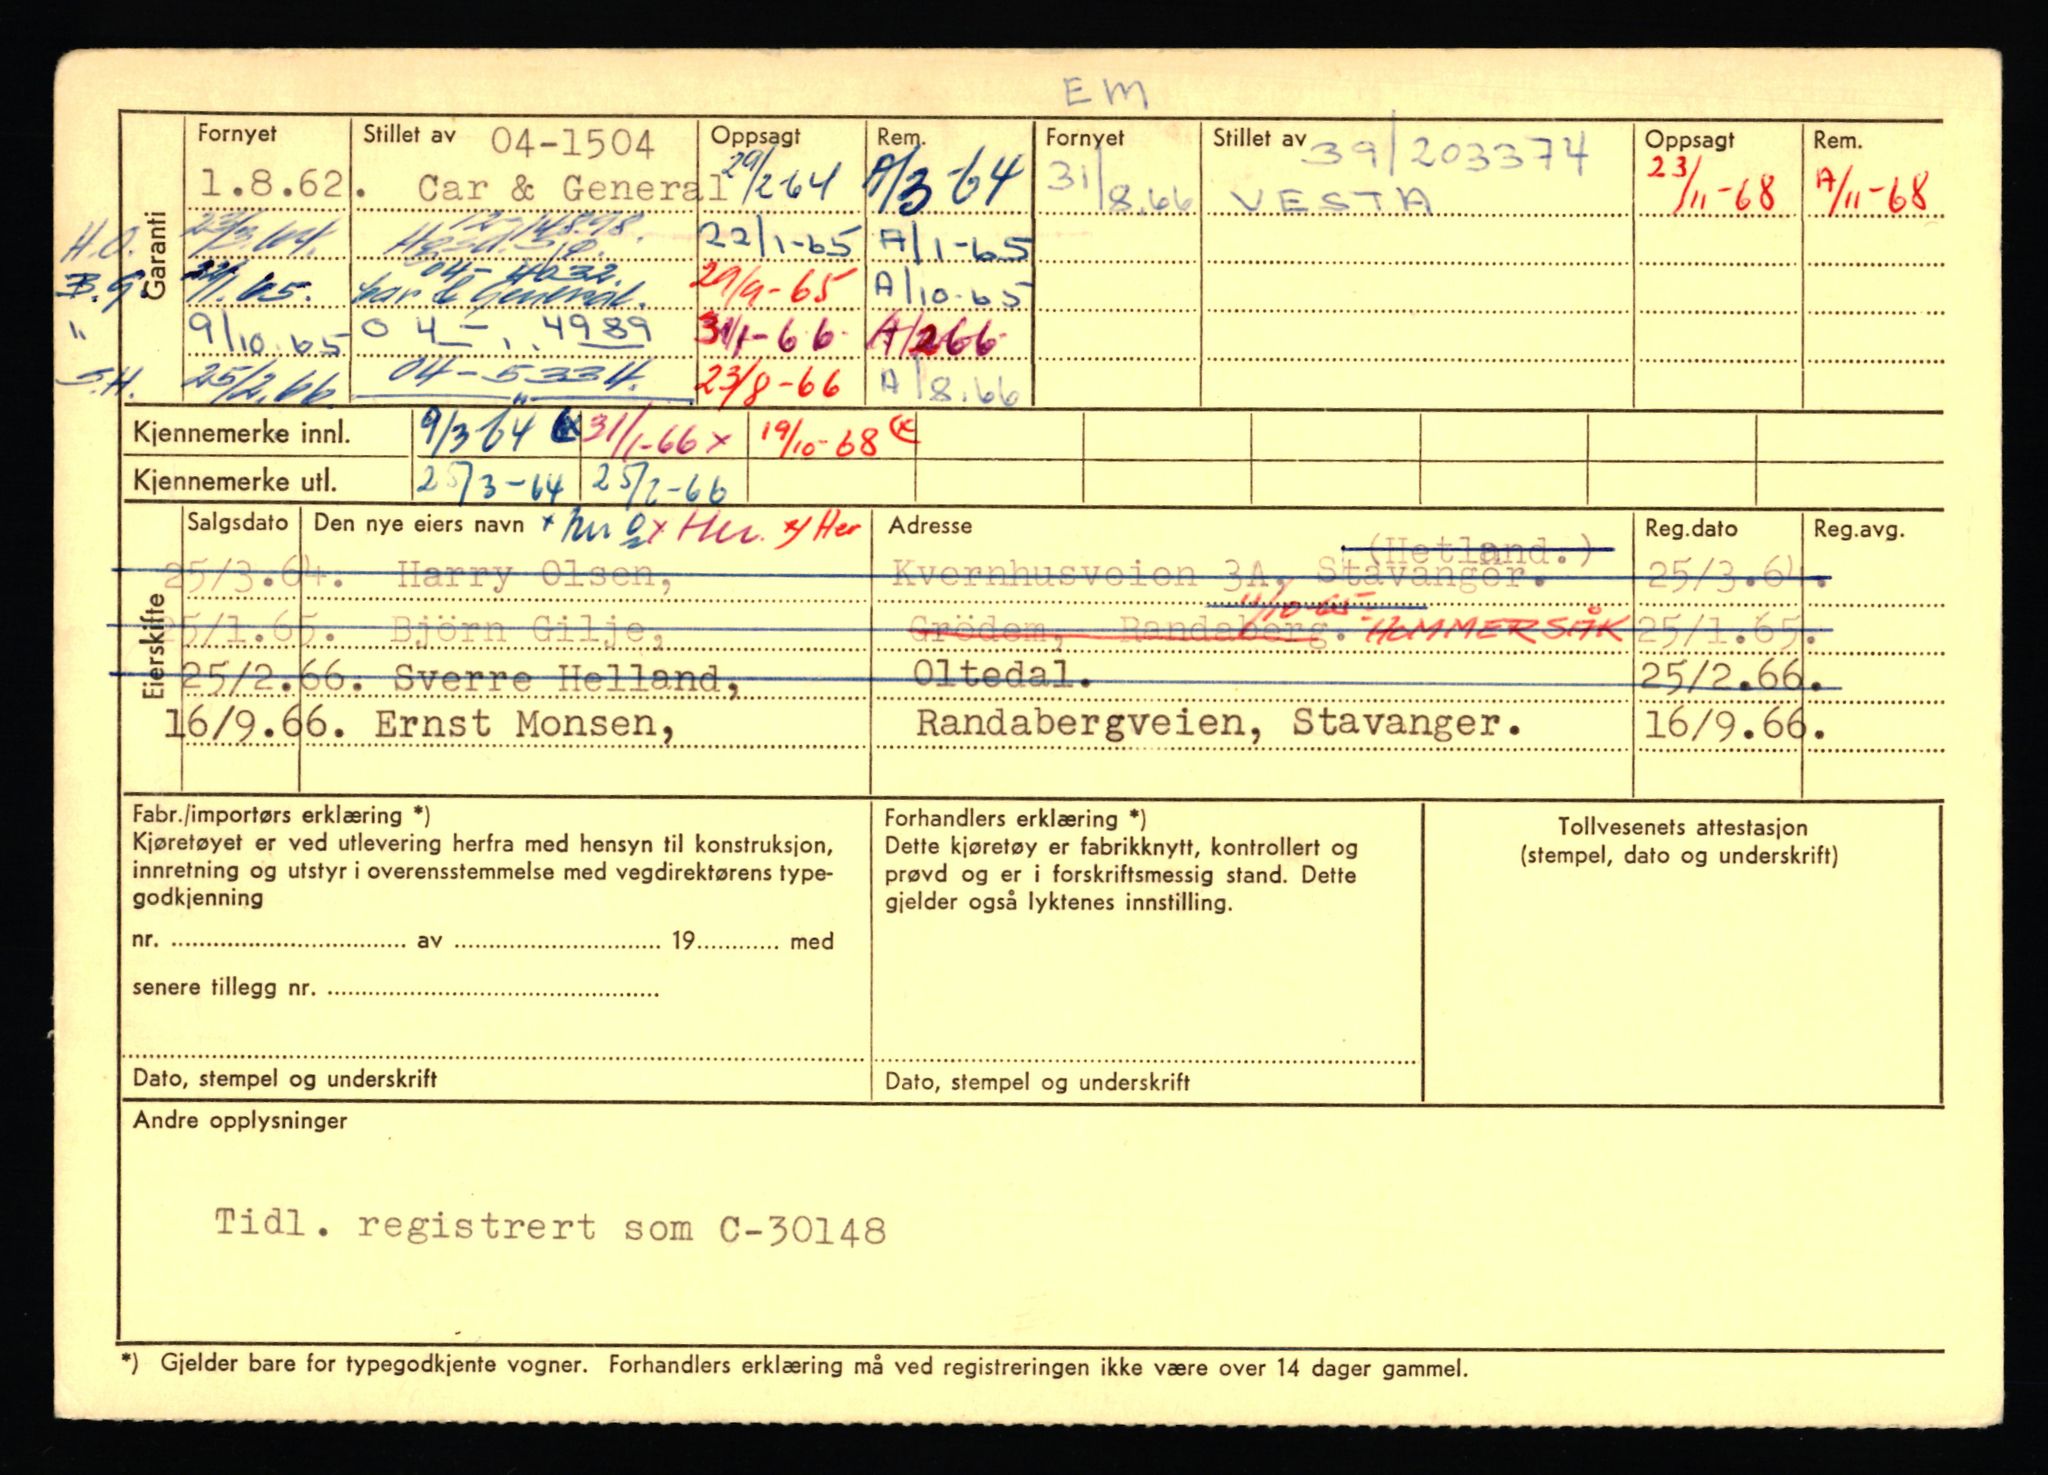 EM
Garanti
Fornyet Stillet av 04-1504 Oppsagt Rem. Fornyet Stillet av 39/203374 Oppsagt Rem.
1.8.62. Car & General 29/2-64 A/3-64 31/8.66 VESTA 23/11-68 A/11-68
H.O. 23/3.64. 22/1-65 A/1-65
B.G. /1.65. 04-4032. Car & General. 29/9-65 A/10-65
" 9/10.65 04- „ 4989 31/1-66 A/2 66
S.H. 25/2.66. 04-5334. 23/8-66 A/8.66
Kjennemerke innl. 9/3-64 31/1-66 x 19/10-68
Kjennemerke utl. 25/3-64 25/2-66
Eierskifte
Salgsdato Den nye eiers navn x Her. x/ Her Adresse Reg.dato Reg.avg.
(Hetland.)
25/3.64. Harry Olsen, Kvernhusveien 3A. Stavanger. 25/3.64.
11/10-65-
25/1.65. Björn Gilje, Grödem, Randaberg. HOMMERSÅK 25/1.65.
25/2.66. Sverre Helland, Oltedal. 25/2.66.
16/9.66. Ernst Monsen, Randabergveien, Stavanger. 16/9.66.
Fabr./importørs erklæring *)
Kjøretøyet er ved utlevering herfra med hensyn til konstruksjon,
innretning og utstyr i overensstemmelse med vegdirektørens type-
godkjenning
nr. .......... av .......... 19.......... med
senere tillegg nr. ..........
Dato, stempel og underskrift
Forhandlers erklæring *)
Dette kjøretøy er fabrikknytt, kontrollert og
prøvd og er i forskriftsmessig stand. Dette
gjelder også lyktenes innstilling.
Dato, stempel og underskrift
Tollvesenets attestasjon
(stempel, dato og underskrift)
Andre opplysninger
Tidl. registrert som C-30148
*) Gjelder bare for typegodkjente vogner. Forhandlers erklæring må ved registreringen ikke være over 14 dager gammel.